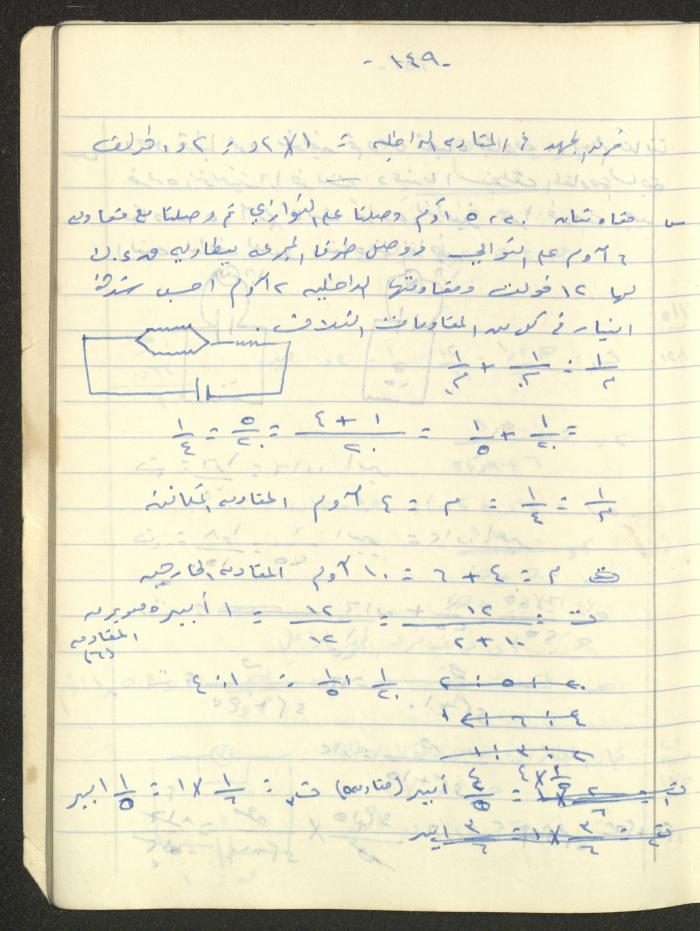 - ١٤٩ -
فرق الجهد في المقاومة الداخلية = ١ × ٢و = ٢و. فولت
س مقاومتان ٢٠، ٥ أوم وصلتا على التوازي ثم وصلتا مع مقاومة
٦ أوم على التوالي ووصل طرفا المجموعة ببطارية ق.د.ك
لها ١٢ فولت ومقاومتها الداخلية ٢ أوم احسب شدة
التيار في كل من المقاومات الثلاث.
١/م = ١/م + ١/م
= ١/٢٠ + ١/٥ = (١ + ٤)/٢٠ = ٥/٢٠ = ١/٤
١/م = ١/٤ = م = ٤ أوم المقاومة المكافئة
م = ٤ + ٦ = ١٠ أوم المقاومة الخارجية
ت = ١٢/(١٠ + ٢) = ١٢/١٢ = ١ أمبير
المقاومة (٦)
١/٢٠ : ١/٥ = ١ : ٤
٤/٥ أمبير (مقاومة ٥) = ١ × = ١/٥ أمبير